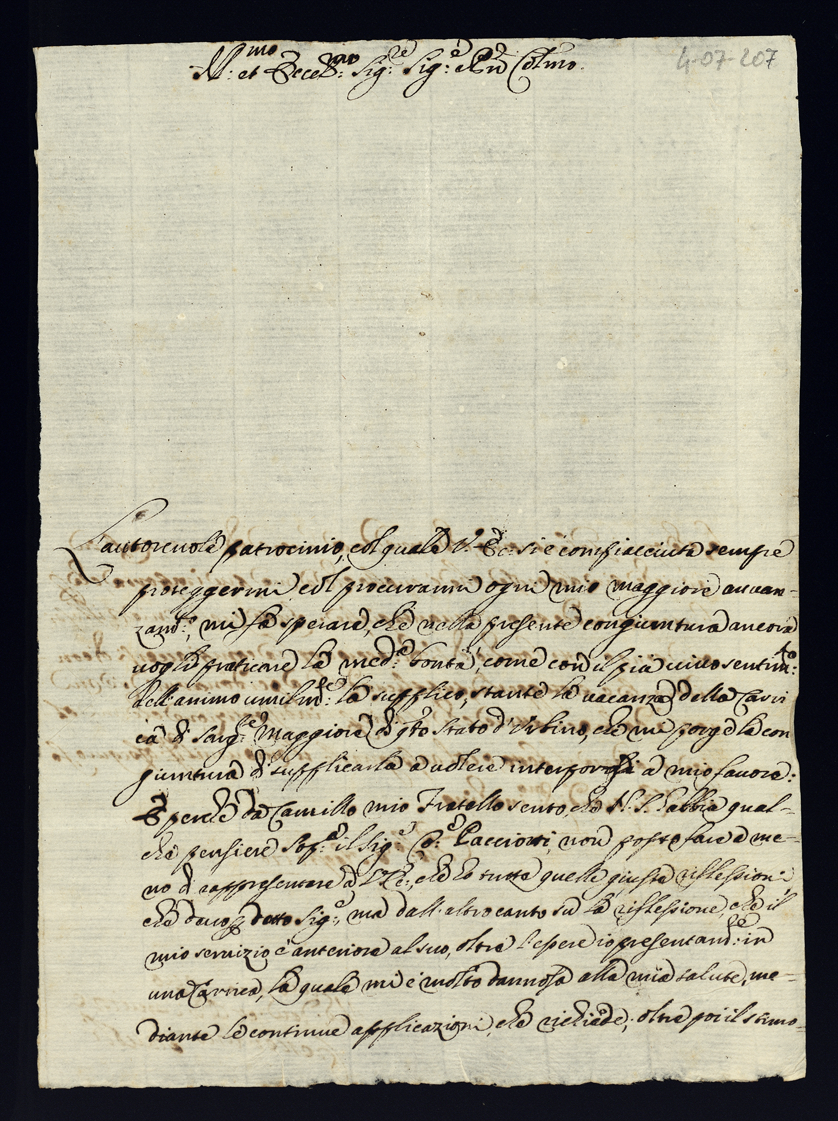 Ill:mo et Ecce:mo Sig:re Sig:e e Pne Colmo.
4-07-207
L'autorevole patrocinio, col quale V. Ec: si è compiacciuta sempre
proteggermi col procurarmi ogni mio maggiore avvan-
zam:to, mi fa sperare, che nella presente congiuntura ancora
voglia praticare la med:a bontà, come con il più vivo sentim:to
dell'animo umilm:te la supplico, stante la vacanza della Cari
ca di Sarg:te Maggiore di q:to Stato d'Urbino, che mi porge la con
giuntura di supplicarla a volere interporsi a mio favore:
E perche da Camillo mio Fratello sento, che N. S. habbia qual-
che pensiere sop:a il Sig:e Co:e Pacciotti, non posso fare a me-
no di rappresentare a V. Ec:, che ho tutte quelle giuste riflessioni
che devo p detto Sig:e, ma dall'altro canto su la riflessione, che il
mio servizio è anteriore al suo, oltre l'essere io presentem:te in
una Carica, la quale mi è molto dannosa alla mia salute, me-
diante le continue applicazioni, che richiede; oltre poi il stimo-